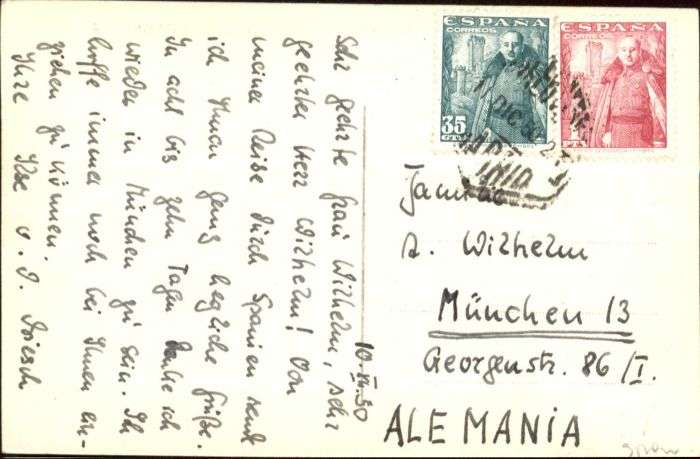 Sehr geehrte Frau Wilhelm, sehr
geehrter Herr Wilhelm! Von
meiner Reise durch Spanien sende
ich Ihnen ganz herzliche Grüße.
In acht bis zehn Tagen denke ich
wieder in München zu sein. Ich
hoffe immer noch bei Ihnen ein-
ziehen zu können.
Ihre Ilse v. d. Driesch
10.XII.50
ESPAÑA
CORREOS
35
CTS
ESPAÑA
CORREOS
1
PTA
DIC
MADRID
Familie
A. Wilhelm
München 13
Georgenstr. 86/I.
ALEMANIA